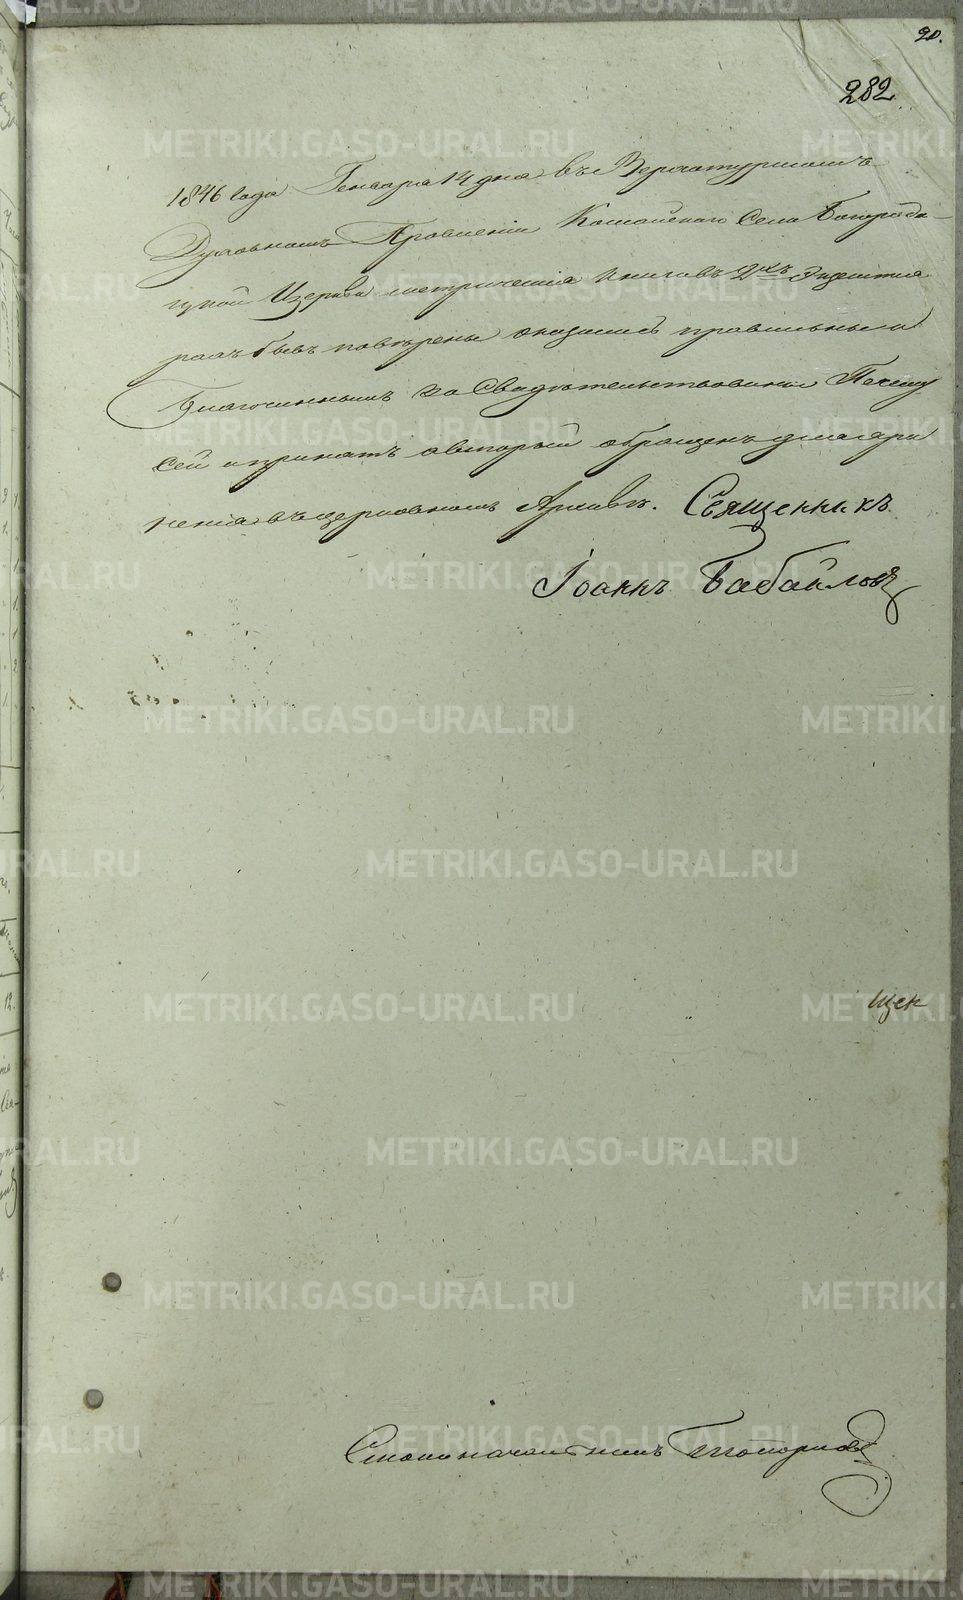 20.
282
1846 года Генваря 14 дня въ Верхотурскомъ
Духовномъ Правленіи Кошайскаго Села Богороди-
цкой Церкви метрическія книги въ 2хъ Экземпля
рахъ бывъ повѣрены оказались правильны и
Благочиннымъ по Свидѣтельствовании Почему
сей и принятъ а вторый обращенъ для хра
ненія въ церковномъ Архивѣ. Священникъ
Іоаннъ Бабайловъ
щен
Столоначальникъ Топорковъ
METRIKI.GASO-URAL.RU